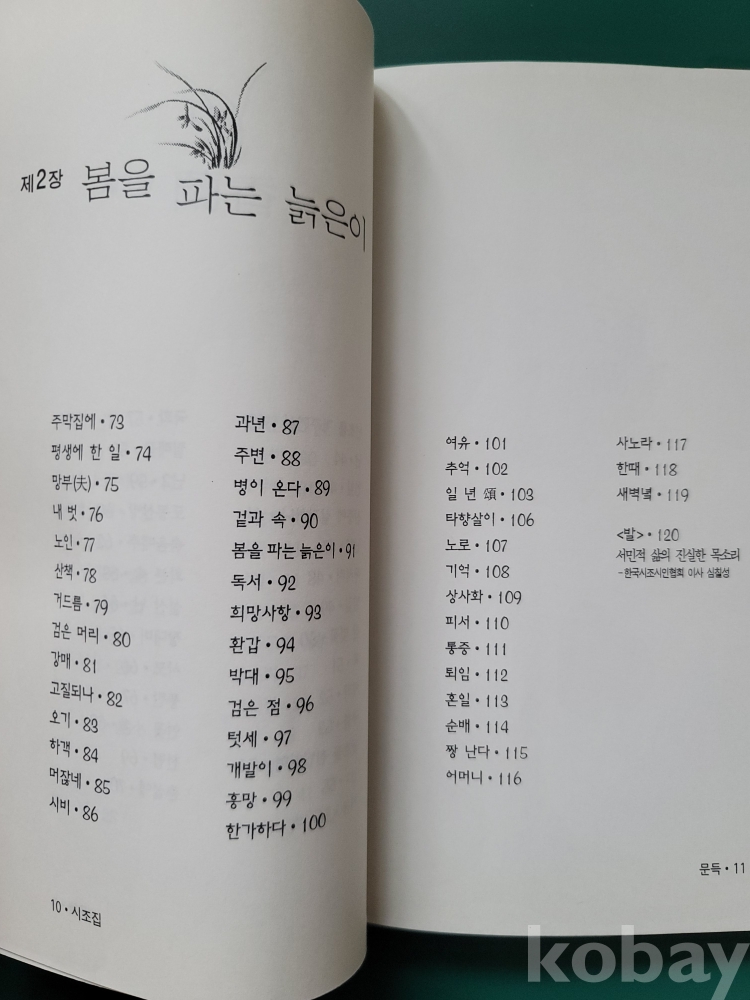 제2장 봄을 파는 늙은이
주막집에 • 73
평생에 한 일 • 74
망부(夫) • 75
내 벗 • 76
노인 • 77
산책 • 78
거드름 • 79
검은 머리 • 80
강매 • 81
고질되나 • 82
오기 • 83
하객 • 84
머잖네 • 85
시비 • 86
과년 • 87
주변 • 88
병이 온다 • 89
겉과 속 • 90
봄을 파는 늙은이 • 91
독서 • 92
희망사항 • 93
환갑 • 94
박대 • 95
검은 점 • 96
텃세 • 97
개발이 • 98
흥망 • 99
한가하다 • 100
10 • 시조집
여유 • 101
추억 • 102
일 년 頌 • 103
타향살이 • 106
노로 • 107
기억 • 108
상사화 • 109
피서 • 110
통증 • 111
퇴임 • 112
혼일 • 113
순배 • 114
짱 난다 • 115
어머니 • 116
사노라 • 117
한때 • 118
새벽녘 • 119
<발> • 120
서민적 삶의 진실한 목소리
-한국시조시인협회 이사 심칠성
문득 • 11
kobay